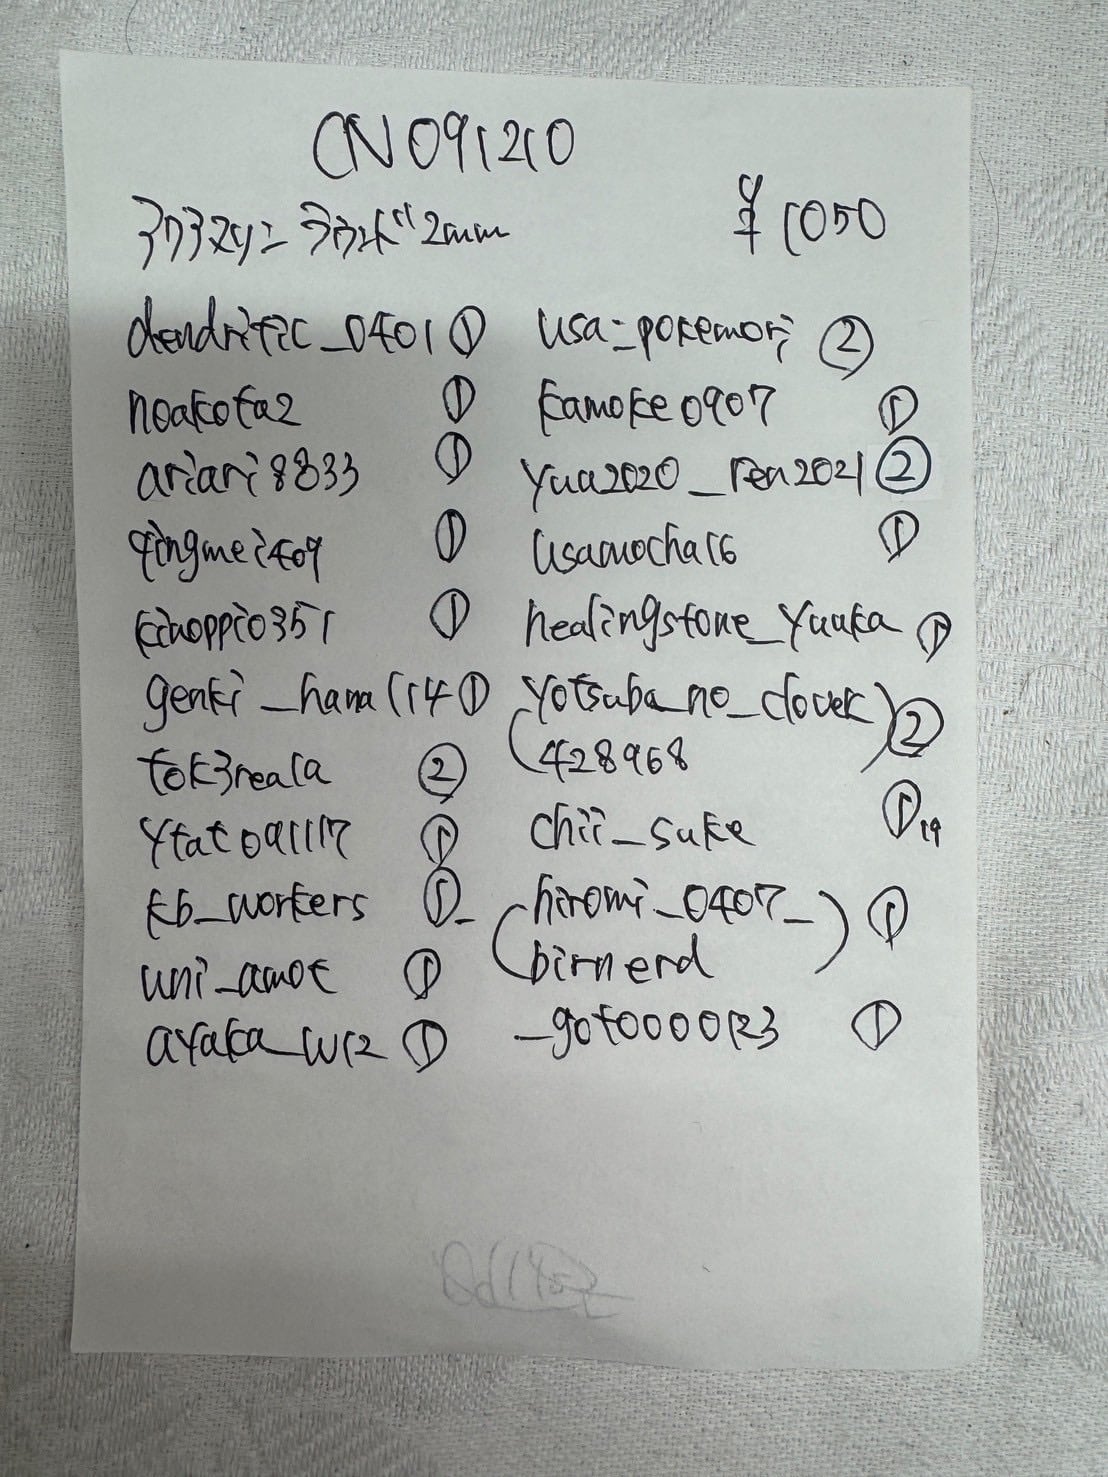 CN091210
アクアマリン ラウンド 2mm
¥1050
dendritic_0401 ①
noakota2 ①
ariari8833 ①
qingmei409 ①
kinoppio351 ①
genki_hana1140 ①
tok3reala ②
ytat091117 ①
kb_workers ①
uni_amot ①
ayaka_w12 ①
usa_pokemori ②
kamoke0907 ①
yua2020_ren2021 ②
usamocha16 ①
healingstone_yuuka ①
(yotsuba_no_clover) ②
428968
chii_suke ① 19
(hiromi_0407_) ①
birnerd
_goto0000123 ①